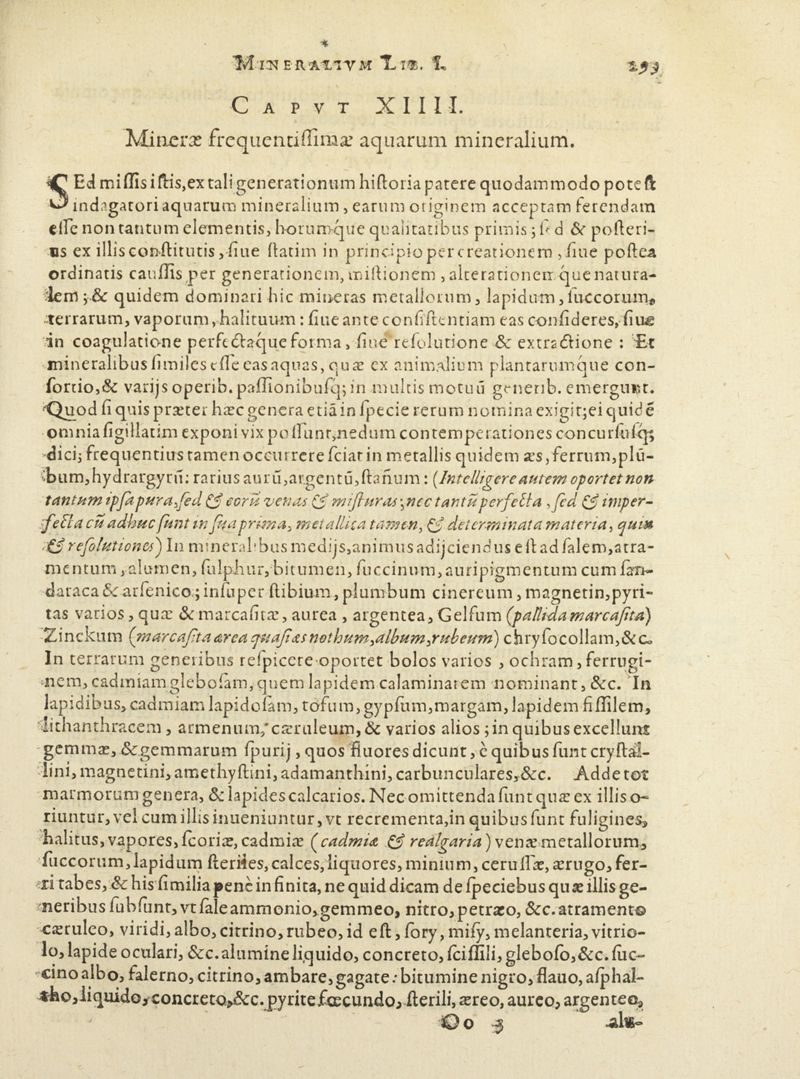 MINERALIVM LIB. I. 293
CAPVT XIIII.
Mineræ frequentiſſimæ aquarum mineralium.
SEd miſſis iſtis,ex tali generationum hiſtoria patere quodammodo poteſt
indagatori aquarum mineralium, earum originem acceptam ferendam
eſſe non tantum elementis, horumque qualitatibus primis; ſed & poſteri-
us ex illis conſtitutis, ſiue ſtatim in principio per creationem, ſiue poſtea
ordinatis cauſſis per generationem, miſtionem, alterationemque natura-
lem; & quidem dominari hic mineras metallorum, lapidum, ſuccorum,
terrarum, vaporum, halituum: ſiue ante conſiſtentiam eas conſideres, ſiue
in coagulatione perfectaque forma, ſiue reſolutione & extractione: Et
mineralibus ſimiles eſſe eas aquas, quæ ex animalium plantarumque con-
ſortio,& varijs operib. paſſionibuſq; in multis motuū generib. emergunt.
Quod ſi quis præter hæc genera etiā in ſpecie rerum nomina exigit;ei quidē
omnia ſigillatim exponi vix poſſunt,nedum contemperationes concurſuſq;
dici; frequentius tamen occurrere ſciat in metallis quidem æs,ferrum,plū-
bum,hydrargyrū: rarius aurū,argentū,ſtañum: (Intelligere autem oportet non
tantum ipſa pura,ſed & eorū venas & miſturas; nec tantū perfecta, ſed & imper-
fecta cū adhuc ſunt in ſua prima, metallica tamen, & determinata materia, quin
& reſolutiones) In mineralibus medijs,animus adijciendus eſt ad ſalem,atra-
mentum, alumen, ſulphur, bitumen, ſuccinum, auripigmentum cum ſan-
daraca & arſenico; inſuper ſtibium, plumbum cinereum, magnetin,pyri-
tas varios, quæ & marcaſitæ, aurea, argentea, Gelfum (pallida marcaſita)
Zinckum (marcaſita ærea quaſi æs nothum,album,rubeum) chryſocollam,&c.
In terrarum generibus reſpicere oportet bolos varios, ochram, ferrugi-
nem, cadmiam gleboſam, quem lapidem calaminarem nominant, &c. In
lapidibus, cadmiam lapidoſam, tofum, gypſum,margam, lapidem fiſſilem,
lithanthracem, armenum, cæruleum, & varios alios; in quibus excellunt
gemmæ, & gemmarum ſpurij, quos fluores dicunt, è quibus ſunt cryſtal-
lini, magnetini, amethyſtini, adamanthini, carbunculares,&c. Adde tot
marmorum genera, & lapides calcarios. Nec omittenda ſunt quæ ex illis o-
riuntur, vel cum illis inueniuntur, vt recrementa,in quibus ſunt fuligines,
halitus, vapores, ſcoriæ, cadmiæ (cadmia & realgaria) venæ metallorum,
ſuccorum, lapidum ſteriles, calces, liquores, minium, ceruſſæ, ærugo, fer-
ri tabes, & his ſimilia penè infinita, ne quid dicam de ſpeciebus quæ illis ge-
neribus ſubſunt, vt ſale ammonio, gemmeo, nitro, petræo, &c. atramento
cæruleo, viridi, albo, citrino, rubeo, id eſt, ſory, miſy, melanteria, vitrio-
lo, lapide oculari, &c. alumine liquido, concreto, ſciſſili, gleboſo,&c. ſuc-
cino albo, falerno, citrino, ambare, gagate: bitumine nigro, flauo, aſphal-
tho, liquido, concreto,&c. pyrite fœcundo, ſterili, æreo, aureo, argenteo,
Oo 3 alu-